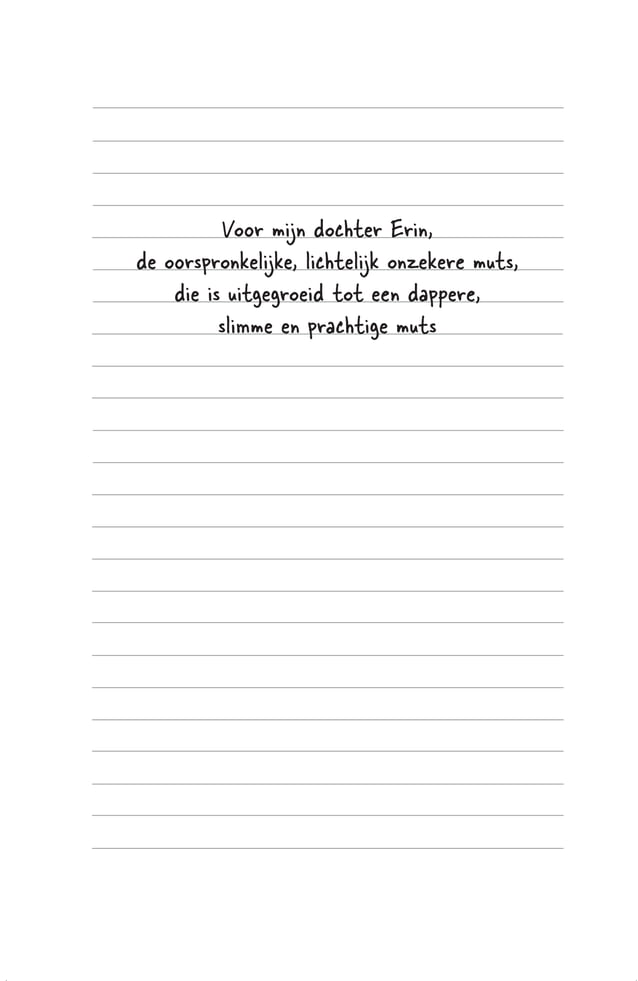 Voor mijn dochter Erin,
de oorspronkelijke, lichtelijk onzekere muts,
die is uitgegroeid tot een dappere,
slimme en prachtige muts